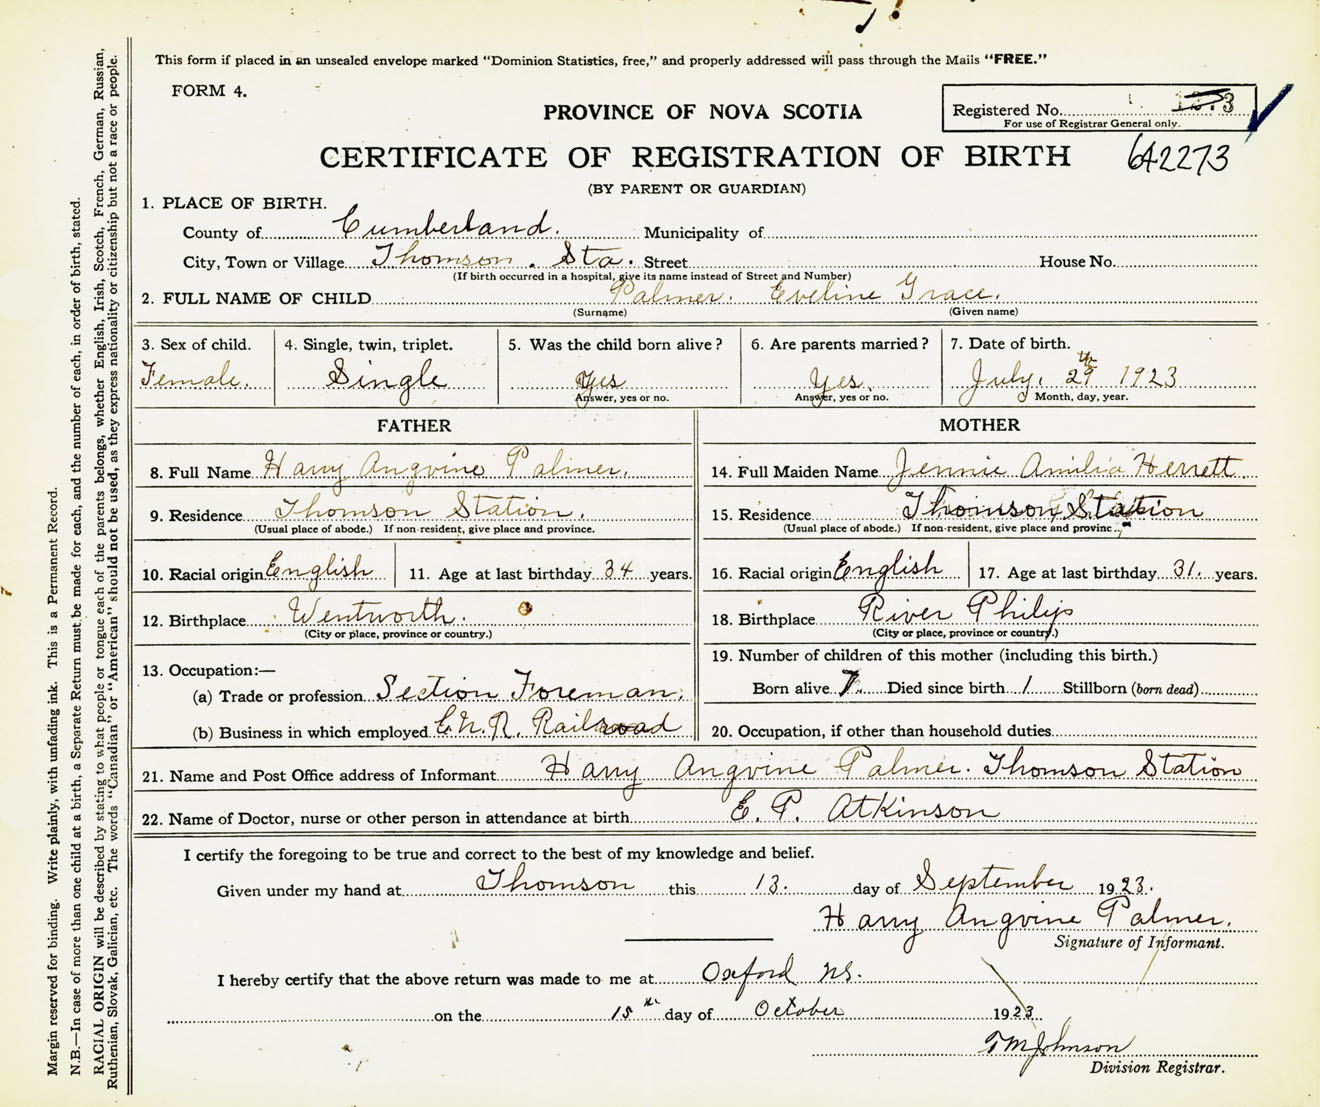 This form if placed in an unsealed envelope marked "Dominion Statistics, free," and properly addressed will pass through the Mails "FREE."
FORM 4.
PROVINCE OF NOVA SCOTIA
Registered No. 3
For use of Registrar General only.
CERTIFICATE OF REGISTRATION OF BIRTH
642273
(BY PARENT OR GUARDIAN)
1. PLACE OF BIRTH.
County of Cumberland. Municipality of
City, Town or Village Thomson. Sta. Street House No.
(If birth occurred in a hospital, give its name instead of Street and Number)
2. FULL NAME OF CHILD Palmer. Eveline Grace.
(Surname) (Given name)
3. Sex of child. 4. Single, twin, triplet. 5. Was the child born alive? 6. Are parents married? 7. Date of birth.
Female. Single Yes Yes. July. 29th 1923
Answer, yes or no. Answer, yes or no. Month, day, year.
FATHER
8. Full Name Harry Angvine Palmer.
9. Residence Thomson Station.
(Usual place of abode.) If non-resident, give place and province.
10. Racial origin English 11. Age at last birthday 34 years.
12. Birthplace Wentworth.
(City or place, province or country.)
13. Occupation:—
(a) Trade or profession Section Foreman.
(b) Business in which employed C.N.R. Railroad
MOTHER
14. Full Maiden Name Jennie Amilia Herrett
15. Residence Thomson Station
(Usual place of abode.) If non-resident, give place and provinc
16. Racial origin English 17. Age at last birthday 31. years.
18. Birthplace River Philip
(City or place, province or country.)
19. Number of children of this mother (including this birth.)
Born alive 7. Died since birth 1 Stillborn (born dead)
20. Occupation, if other than household duties
21. Name and Post Office address of Informant Harry Angvine Palmer. Thomson Station
22. Name of Doctor, nurse or other person in attendance at birth E. P. Atkinson
I certify the foregoing to be true and correct to the best of my knowledge and belief.
Given under my hand at Thomson this 13. day of September 1923.
Harry Angvine Palmer.
Signature of Informant.
I hereby certify that the above return was made to me at Oxford NS.
on the 15th day of October 1923
T M Johnson
Division Registrar.
Margin reserved for binding. Write plainly, with unfading ink. This is a Permanent Record.
N.B.—In case of more than one child at a birth, a Separate Return must be made for each, and the number of each, in order of birth, stated.
RACIAL ORIGIN will be described by stating to what people or tongue each of the parents belongs, whether English, Irish, Scotch, French, German, Russian,
Ruthenian, Slovak, Galician, etc. The words "Canadian" or "American" should not be used, as they express nationality or citizenship but not a race or people.